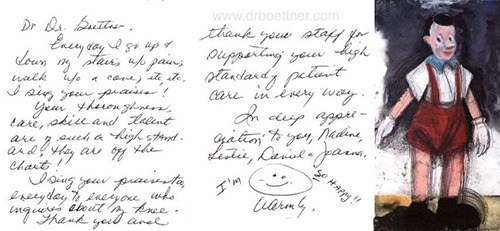 www.drboettner.com
Dr Dr. Boettner,
Everyday I go up &
down my stairs w/o pain,
walk w/o a cane, etc. etc.
I sing your praises!
Your thoroughness,
care, skill and talent
are of such a high stand-
ard! they are off the
charts!!
I sing your praises
everyday to everyone who
inquires about my knee.
Thank you and
thank your staff for
supporting your high
standards patient
care in every way.
In deep appre-
ciation to you, Nadine,
Leslie, Daniel & Joanna.
I'M
SO HAPPY!!
Warmly,